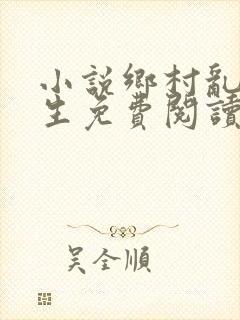 小說鄉村亂
生免費閱讀
吴全順